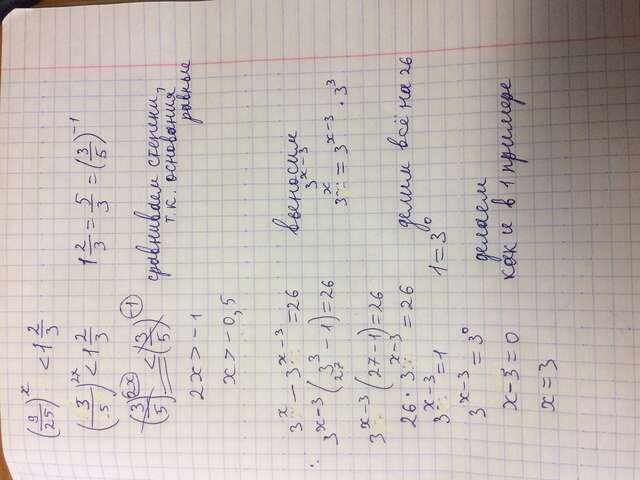 (9/25)^x < 1 2/3
(3/5)^2x < 1 2/3 1 2/3 = 5/3 = (3/5)^-1
(3/5)^2x < (3/5)^-1 сравниваем степени,
т.к. основания
равные
2x > -1
x > -0,5
3^x - 3^x-3 = 26 выносим
3^x-3
3^x-3 (3^3 - 1) = 26 3^x = 3^x-3 · 3^3
27
3^x-3 (27-1) = 26
26 · 3^x-3 = 26 делим всё на 26
3^x-3 = 1 1 = 3^0
3^x-3 = 3^0 делаем
x-3 = 0 как и в 1 примере
x = 3